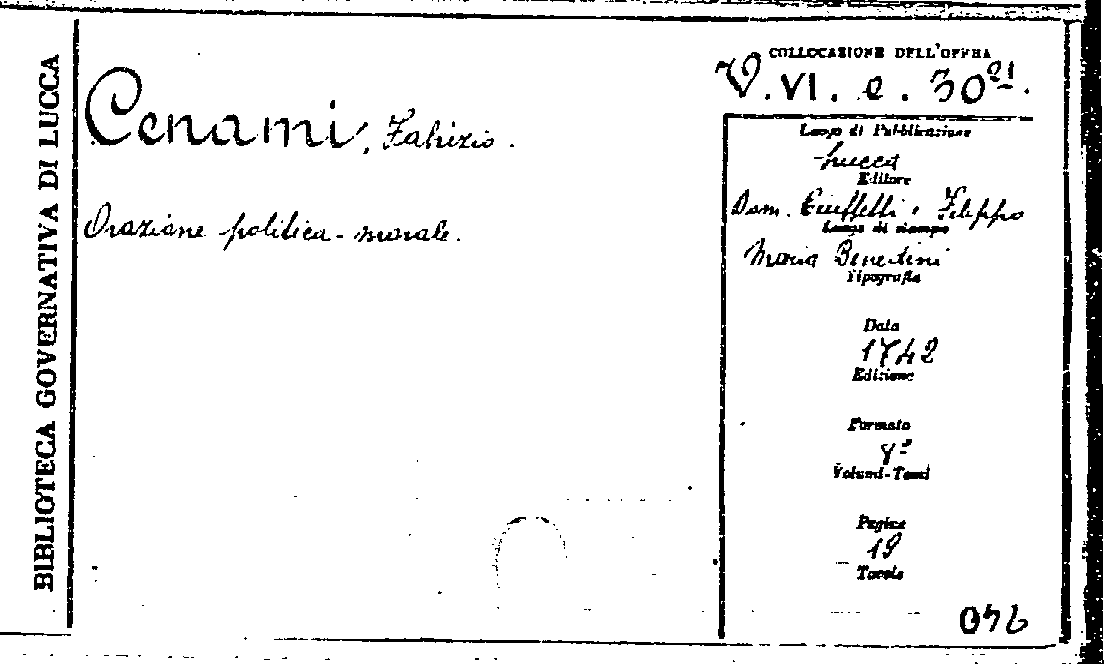 BIBLIOTECA GOVERNATIVA DI LUCCA
Cenami, Fabrizio.
Orazione politica-morale.
COLLOCAZIONE DELL'OPERA
V. VI. e. 30 21.
Luogo di Pubblicazione
Lucca
Editore
Dom. Ciuffetti e Filippo
Luogo di stampa
Maria Benedini
Tipografia
Data
1742
Edizione
Formato
8º
Volumi-Tomi
Pagine
19
Tavole
046